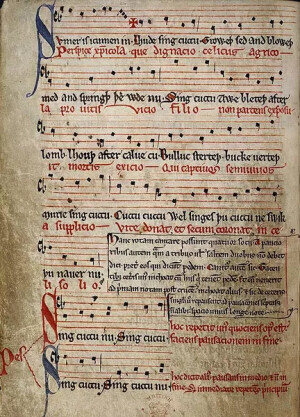 Svmer is icumen in · Lhude sing cuccu · Groweþ sed and bloweþ
Perspice xp̄icola que dignacio celicus agrico
med and springþ þe wde nu · Sing cuccu · Awe bleteþ after
la pro uitis vicio filio non parcens exposu
lomb · lhouþ after calue cu · Bulluc sterteþ · bucke uerteþ
it mortis exicio Qui captiuos semiuiuos
murie sing cuccu · Cuccu cuccu Wel singes þu cuccu ne swik
a supplicio Vite donat et secum coronat in ce
þu nauer nu ·
li solio ·
Hanc rotam cantare possunt quatuor socii · A paucio
ribus autem quam a tribus uel saltem duobus non debet
dici preter eos qui dicunt pedem · Canitur autem sic · Tacen
tibus ceteris unus inchoat cum hiis qui tenent pedem · Et cum uenerit
ad primam notam post crucem inchoat alius · et sic de ceteris
Sing cuccu nu · Sing cuccu ·
hoc repetit unus quociens opus est
faciens pausacionem in fine
Pes
Sing cuccu · Sing cuccu nu ·
hoc dicit alius pausans in medio et non in
fine · Set immediate repetens principium